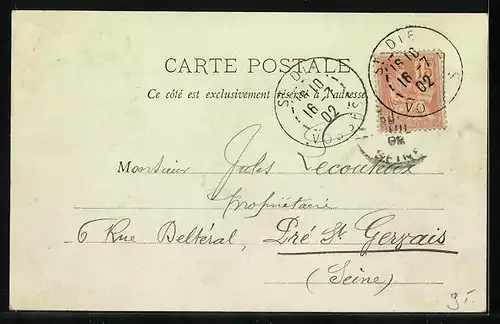 CARTE POSTALE
Ce côté est exclusivement réservé à l'adresse
ST DIÉ
16 10
16 -7
02
VOSGES
ST DIE
16 10
16 -7
02
VO S
02
SEINE
Monsieur Jules Lecouteux
Propriétaire
6 Rue Deltéral, Pré St Gervais
(Seine)